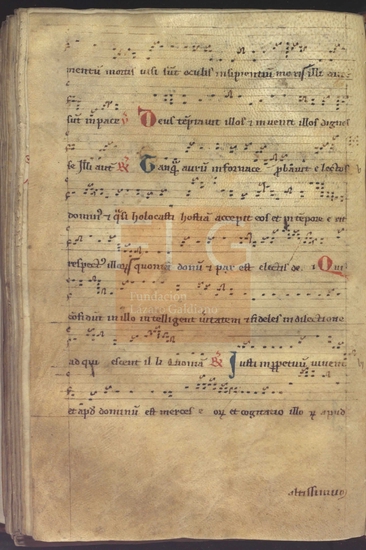 mentum mortis visi sūt oculis insipientiū mori illi aut
sūt in pace ℣ Deus tēptavit illos ⁊ invenit illos dignos
se Illi autē ℟ Tanq̄ aurū in fornace pbavit electos
dominus ⁊ q̄si holocausti hostiā accepit eos et in tēpore erit
respect illorū quoniā donū ⁊ pax est electis dei ℣ Qui
cōfidūt in illo intelligent vitatem ⁊ fideles in dilectione
adqui escent illi Quoniā ℟ Iusti īppetuū vivent
et apud dominum est merces eorum et cogitatio illorum apud
altissimum
Fundación
Lázaro Galdiano